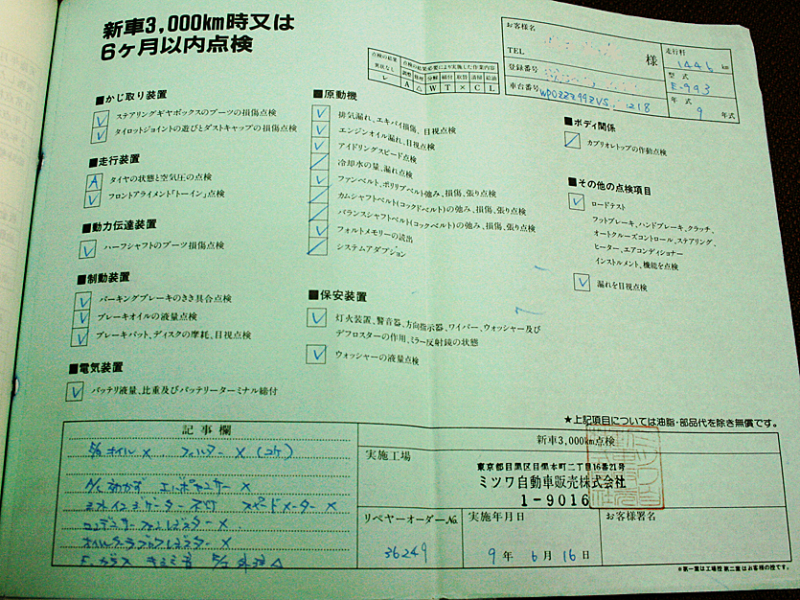 新車3,000km時又は
6ヶ月以内点検
点検の結果
異状なし
点検の結果必要により実施した作業内容
調整 修理 分解 締付 取替 清掃 給油
レ A △ W T × C L
お客様名
様
TEL
登録番号
車台番号
走行粁
1446 km
型式
E-993
年式
9 年式
■かじ取り装置
ステアリングギヤボックスのブーツの損傷点検
タイロットジョイントの遊びとダストキャップの損傷点検
■走行装置
A タイヤの状態と空気圧の点検
フロントアライメント「トーイン」点検
■動力伝達装置
ハーフシャフトのブーツ損傷点検
■制動装置
パーキングブレーキのきき具合点検
ブレーキオイルの液量点検
ブレーキパット、ディスクの摩耗、目視点検
■電気装置
バッテリ液量、比重及びバッテリーターミナル締付
■原動機
排気漏れ、エキパイ損傷、目視点検
エンジンオイル漏れ、目視点検
アイドリングスピード点検
冷却水の量、漏れ点検
ファンベルト、ポリリブベルト弛み、損傷、張り点検
カムシャフトベルト(コックドベルト)の弛み、損傷、張り点検
バランスシャフトベルト(コックベルト)の弛み、損傷、張り点検
フォルトメモリーの読出
システムアダプション
■保安装置
灯火装置、警音器、方向指示器、ワイパー、ウォッシャー及び
デフロスターの作用、ミラー反射鏡の状態
ウォッシャーの液量点検
■ボディ関係
カブリオレトップの作動点検
■その他の点検項目
ロードテスト
フットブレーキ、ハンドブレーキ、クラッチ、
オートクルーズコントロール、ステアリング、
ヒーター、エアコンディショナー
インストルメント、機能を点検
漏れを目視点検
★上記項目については油脂・部品代を除き無償です。
記事欄
オイル × フィルター ×
スピードメーター ×
新車3,000km点検
実施工場
東京都目黒区目黒本町二丁目16番21号
ミツワ自動車販売株式会社
1-9016
リペヤーオーダーNo.
36249
実施年月日
9 年 6 月 16 日
お客様署名
※第一葉は工場控 第二葉はお客様の控です。